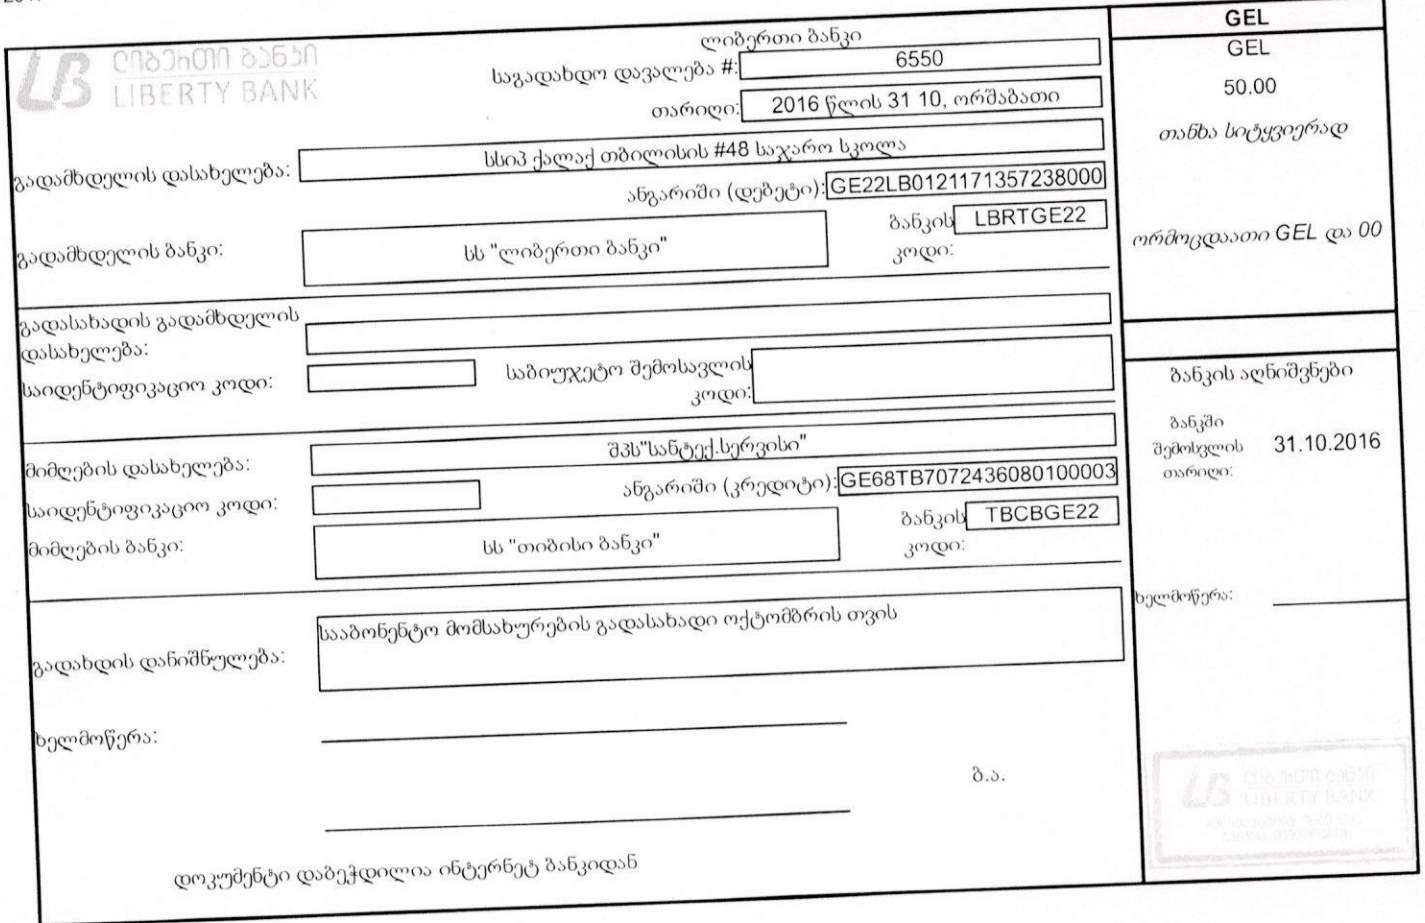 ლიბერთი ბანკი
LIBERTY BANK
ლიბერთი ბანკი
საგადახდო დავალება #: 6550
თარიღი: 2016 წლის 31 10, ორშაბათი
გადამხდელის დასახელება: სსიპ ქალაქ თბილისის #48 საჯარო სკოლა
ანგარიში (დებეტი): GE22LB0121171357238000
გადამხდელის ბანკი: სს "ლიბერთი ბანკი" ბანკის კოდი: LBRTGE22
გადასახადის გადამხდელის
დასახელება:
საიდენტიფიკაციო კოდი: საბიუჯეტო შემოსავლის
კოდი:
მიმღების დასახელება: შპს"სანტექ.სერვისი"
საიდენტიფიკაციო კოდი: ანგარიში (კრედიტი): GE68TB7072436080100003
მიმღების ბანკი: სს "თიბისი ბანკი" ბანკის კოდი: TBCBGE22
გადახდის დანიშნულება: სააბონენტო მომსახურების გადასახადი ოქტომბრის თვის
ხელმოწერა:
ბ.ა.
დოკუმენტი დაბეჭდილია ინტერნეტ ბანკიდან
GEL
GEL
50.00
თანხა სიტყვიერად
ორმოცდაათი GEL და 00
ბანკის აღნიშვნები
ბანკში
შემოსვლის 31.10.2016
თარიღი:
ხელმოწერა:
LB ლიბერთი ბანკი
LIBERTY BANK